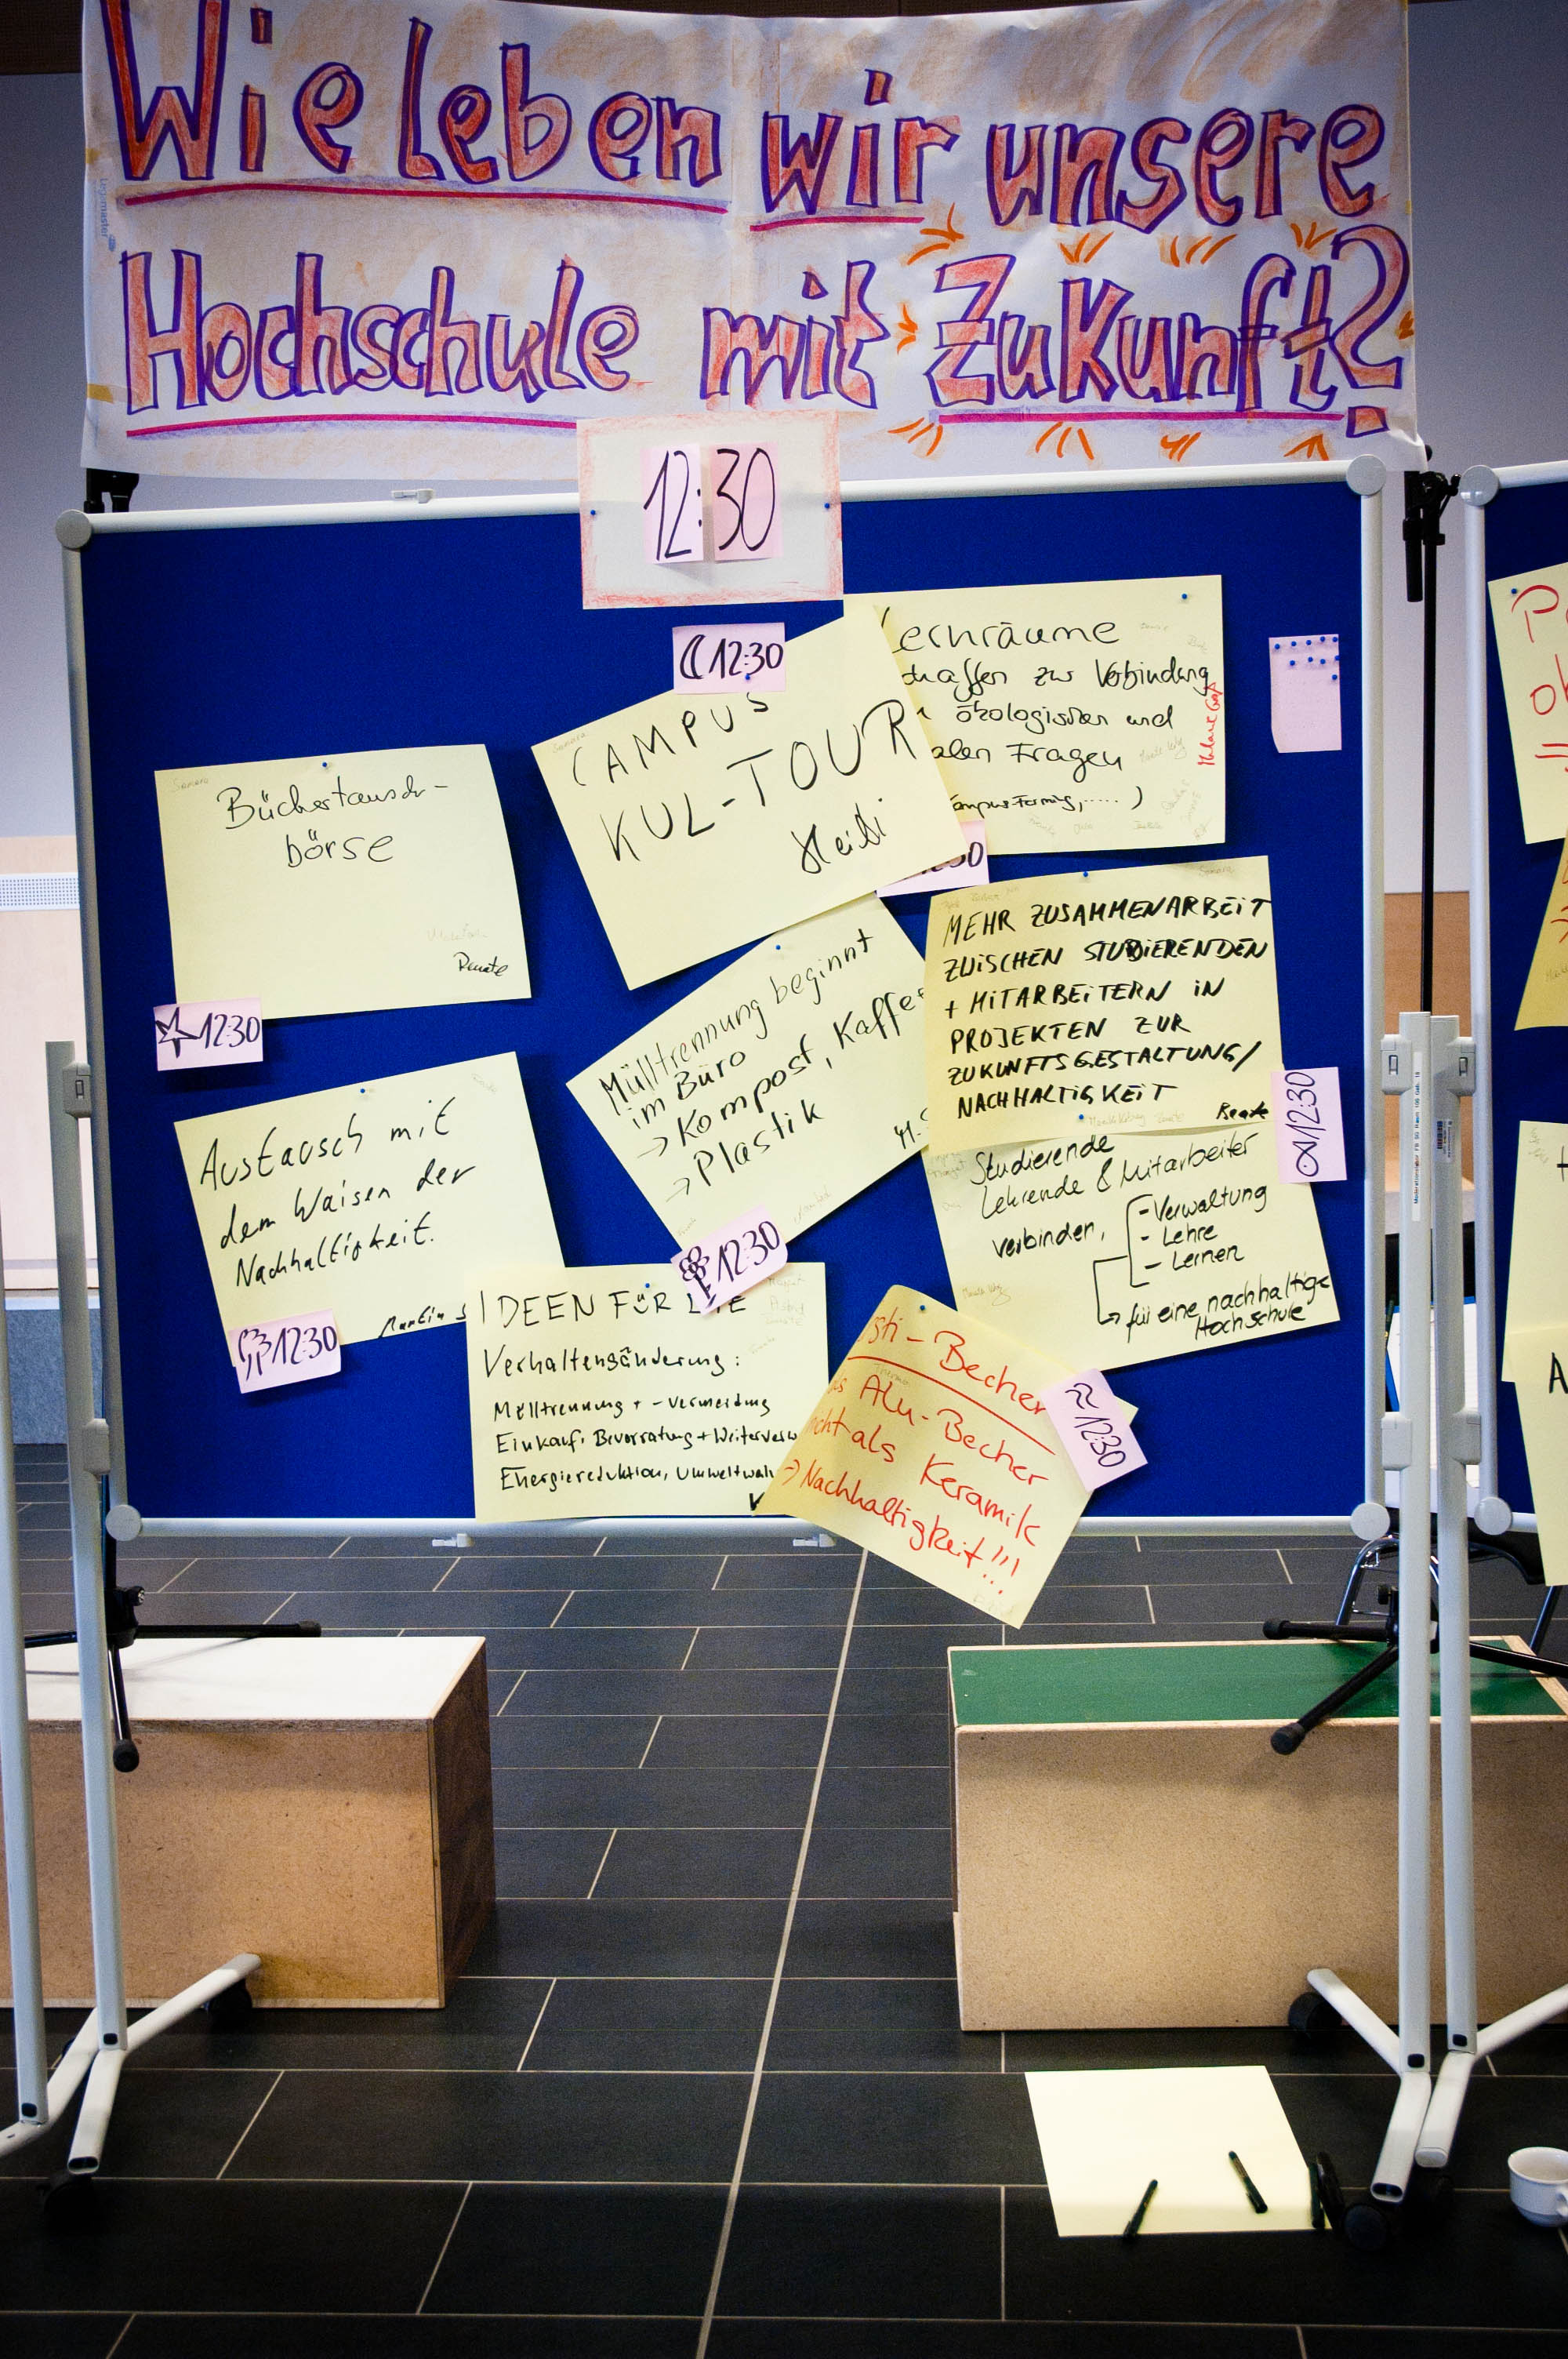 Wie leben wir unsere
Hochschule mit Zukunft?
12:30
12:30
CAMPUS
KUL-TOUR
Heidi
ernräume
chaffen zur Verbindung
ökologischen und
alen Fragen
Büchertausch-
börse
Renate
12:30
30
Mülltrennung beginnt
im Büro
→ Kompost, Kaffee
→ Plastik
MEHR ZUSAMMENARBEIT
ZWISCHEN STUDIERENDEN
+ MITARBEITERN IN
PROJEKTEN ZUR
ZUKUNFTSGESTALTUNG/
NACHHALTIGKEIT
Renate
12:30
Austausch mit
dem Waisen der
Nachhaltigkeit.
Martin S
12:30
Studierende
Lehrende & Mitarbeiter
verbinden,
- Verwaltung
- Lehre
- Lernen
für eine nachhaltige
Hochschule
12:30
IDEEN FÜR
Verhaltensänderung:
Mülltrennung + -vermeidung
Einkauf, Bevorratung + Weiterverw
Energiereduktion, Umweltwah
sti-Becher
Alu-Becher
cht als Keramik
→ Nachhaltigkeit!!!
12:30